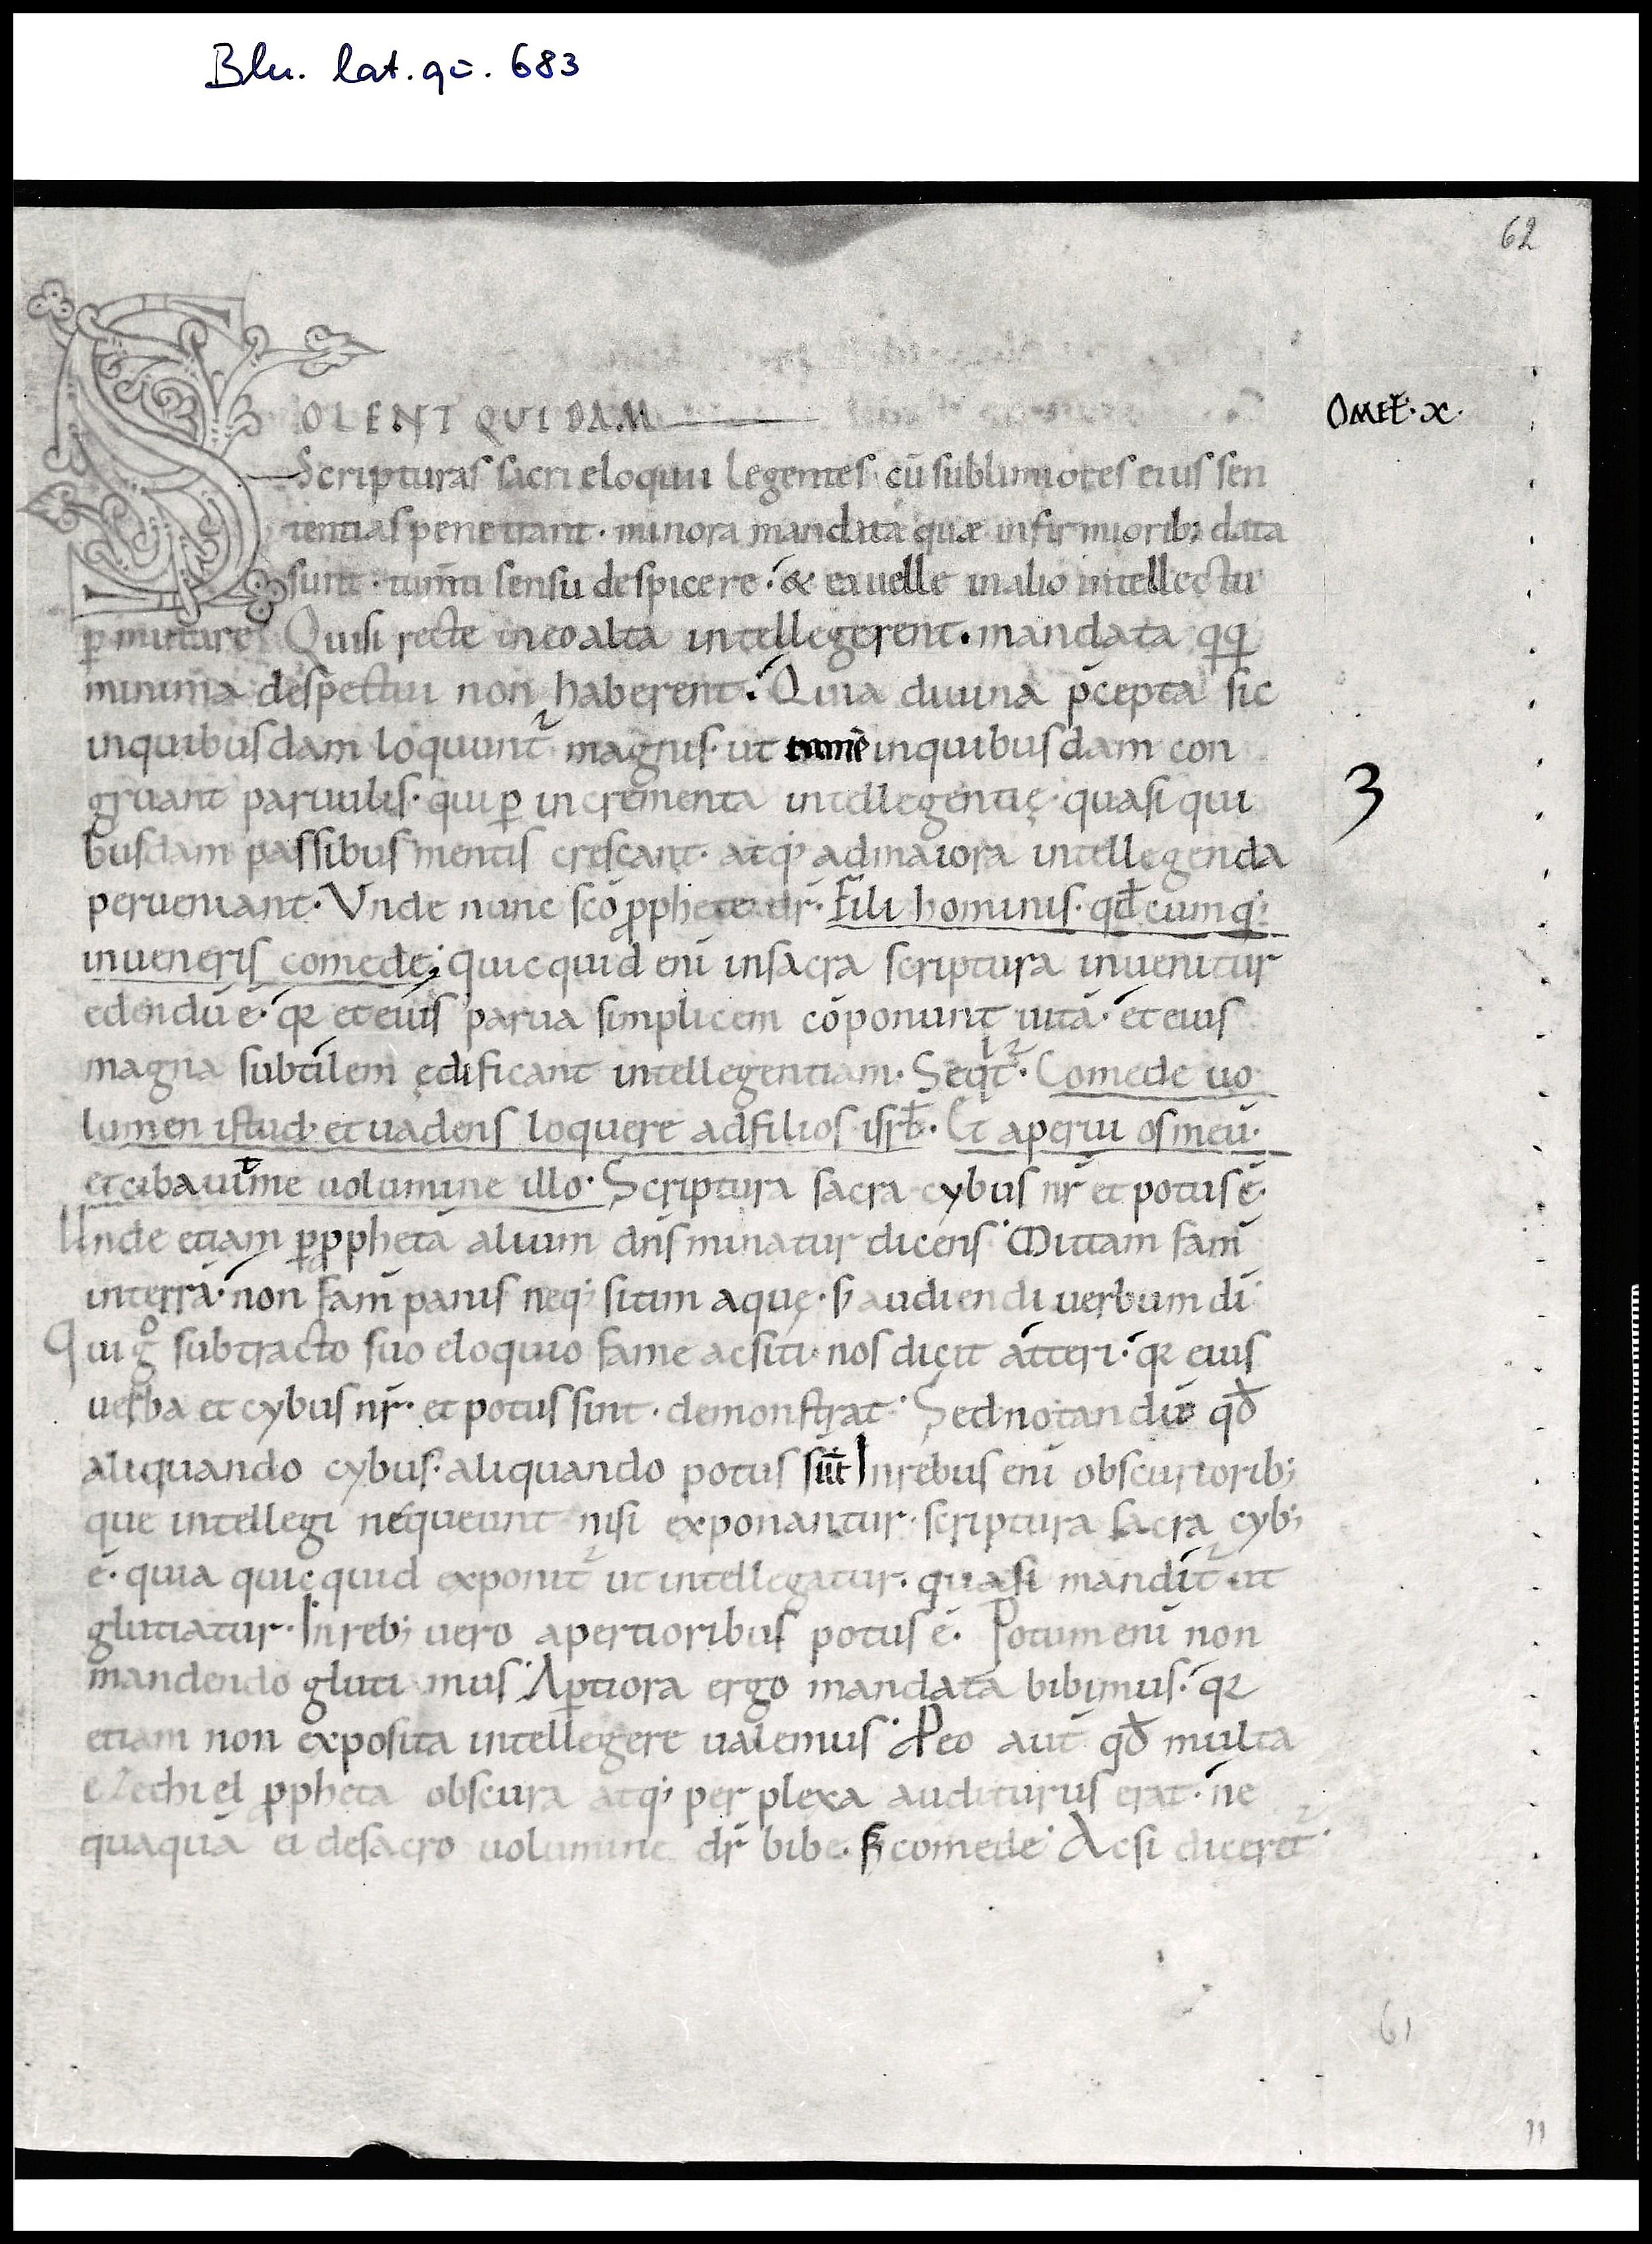 Bln. lat. qu. 683
62
SOLENT QUIDAM
Omet. x.
Scripturas sacri eloquii legentes cū sublimiores eius sen
tentias penetrant · minora mandata quæ infirmiorib; data
sunt · tum̄ti sensu despicere · & ea uelle in alio intellectu
p̱mutare · Qui si recte in eo alta intellegerent · mandata qͅqͅ
minima despectui non haberent · Quia diuina p̄cepta sic
in quibusdam loquunt᷑ magnis · ut tamē in quibusdam con
gruant paruulis · qui ꝑ incrementa intellegentię · quasi qui
3
busdam passibus mentis crescant · atq; ad maiora intellegenda
perueniant · Vnde nunc sc̄o ꝓphete dr̄ · Fili hominis · qd̄cumq;
inueneris comede; quicquid eni̅ in sacra scriptura inuenitur
edendū ē · qꝛ et eius parua simplicem cōponunt uitā · et eius
magna subtilem ędificant intellegentiam · Seqit᷑ · Comede uo
lumen istud · et uadens loquere ad filios isrl̄ · Et aperui os meū ·
et cibauit me uolumine illo · Scriptura sacra cybus nr̄ et potus ē ·
Unde etiam ꝑ ꝓphetā alium dn̄s minatur dicens · Mittam fam̄
in terrā · non fam̄ panis neq; sitim aquę · s; audiendi uerbum dī
Qui gͦ subtracto suo eloquio fame ac siti nos dicit atteri · qꝛ eius
uerba et cybus nr̄ · et potus sint · demonstrat · Sed notandū qđ
aliquando cybus · aliquando potus sūt In rebus eni̅ obscuriorib;
que intellegi nequeunt nisi exponantur · scriptura sacra cyb;
ē · quia quicquid exponit᷑ ut intellegatur · quasi mandit᷑ ut
glutiatur · In reb; uero apertioribus potus ē · Potum eni̅ non
mandendo glutimus · Aꝑtiora ergo mandata bibimus · qꝛ
etiam non exposita intellegere ualemus · Pro eo aut̄ qđ multa
ezechiel ꝓpheta obscura atq; perplexa auditurus erat · ne
quaquā ei de sacro uolumine dr̄ bibe · s; comede · Ac si diceret᷑ ·
61